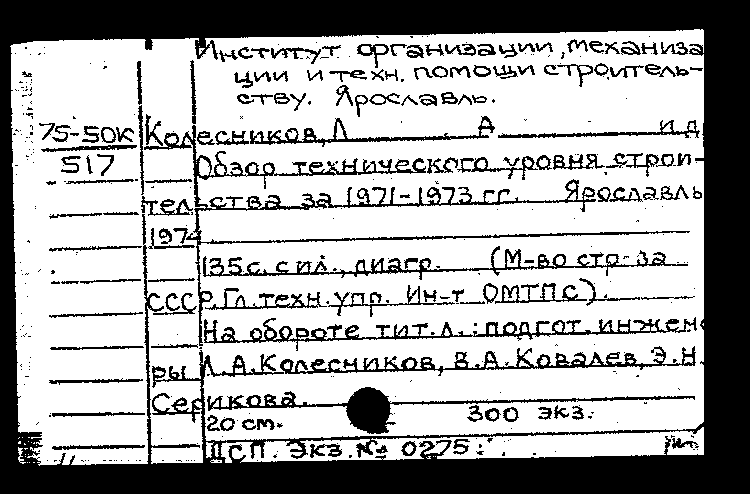 Институт организации, механиза
ции и техн. помощи строитель-
ству. Ярославль.
75-50К Колесников, Л А и д
517 Обзор технического уровня строи-
тельства за 1971-1973 гг. Ярославль
1974
135 с. с ил., диагр. (М-во стр-ва
СССР. Гл. техн. упр. Ин-т ОМТПС).
На обороте тит. л.: подгот. инжене
ры Л.А. Колесников, В.А. Ковалев, Э.Н.
Серикова.
20 см. 300 экз.
ДСП. Экз. № 0275.